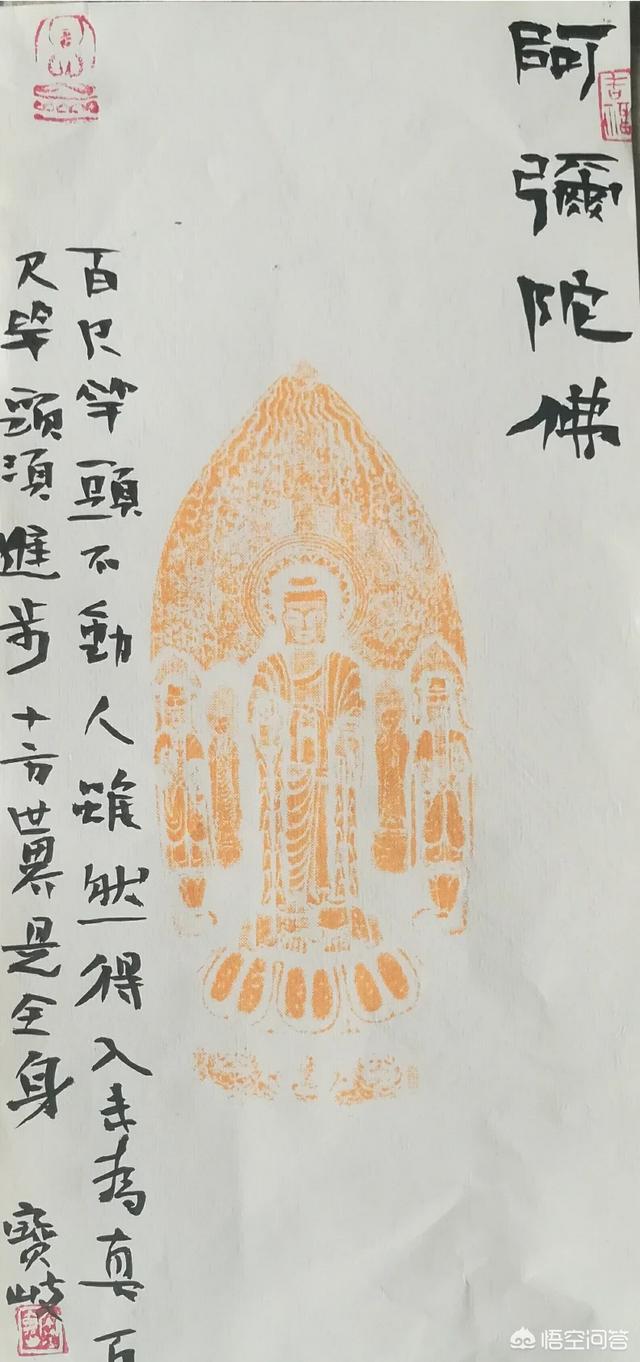 阿彌陀佛
吉福
百尺竿頭不動人雖然得入未為真百
尺竿頭須進步十方世界是全身
寶岐
悟空问答